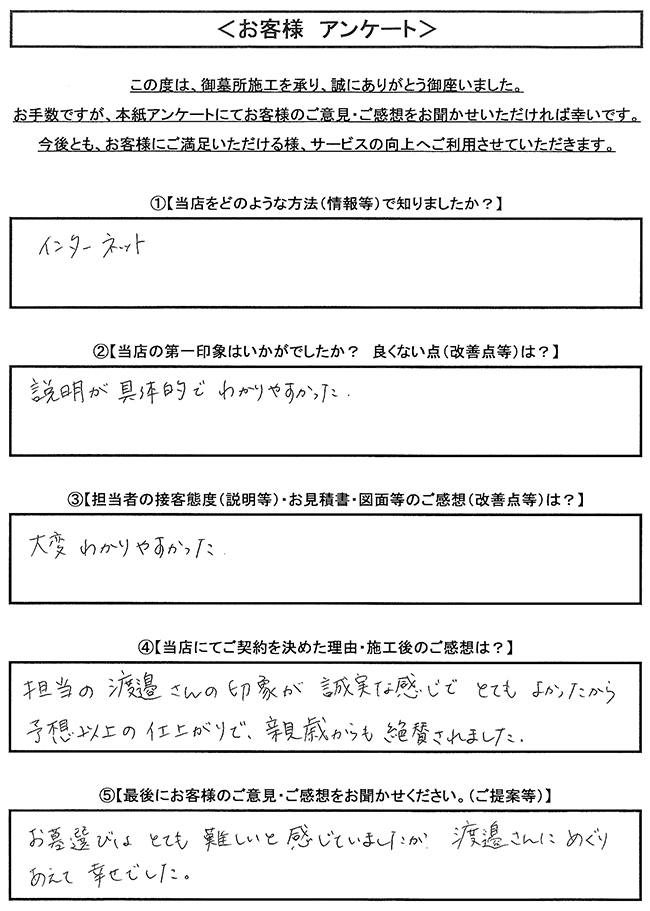 ＜お客様 アンケート＞
この度は、御墓所施工を承り、誠にありがとう御座いました。
お手数ですが、本紙アンケートにてお客様のご意見・ご感想をお聞かせいただければ幸いです。
今後とも、お客様にご満足いただける様、サービスの向上へご利用させていただきます。
①【当店をどのような方法（情報等）で知りましたか？】
インターネット
②【当店の第一印象はいかがでしたか？ 良くない点（改善点等）は？】
説明が具体的でわかりやすかった.
③【担当者の接客態度（説明等）・お見積書・図面等のご感想（改善点等）は？】
大変わかりやすかった.
④【当店にてご契約を決めた理由・施工後のご感想は？】
担当の渡邉さんの印象が誠実な感じでとてもよかったから
予想以上の仕上がりで、親戚からも絶賛されました.
⑤【最後にお客様のご意見・ご感想をお聞かせください。（ご提案等）】
お墓選びはとても難しいと感じていましたが渡邉さんにめぐり
あえて幸せでした。